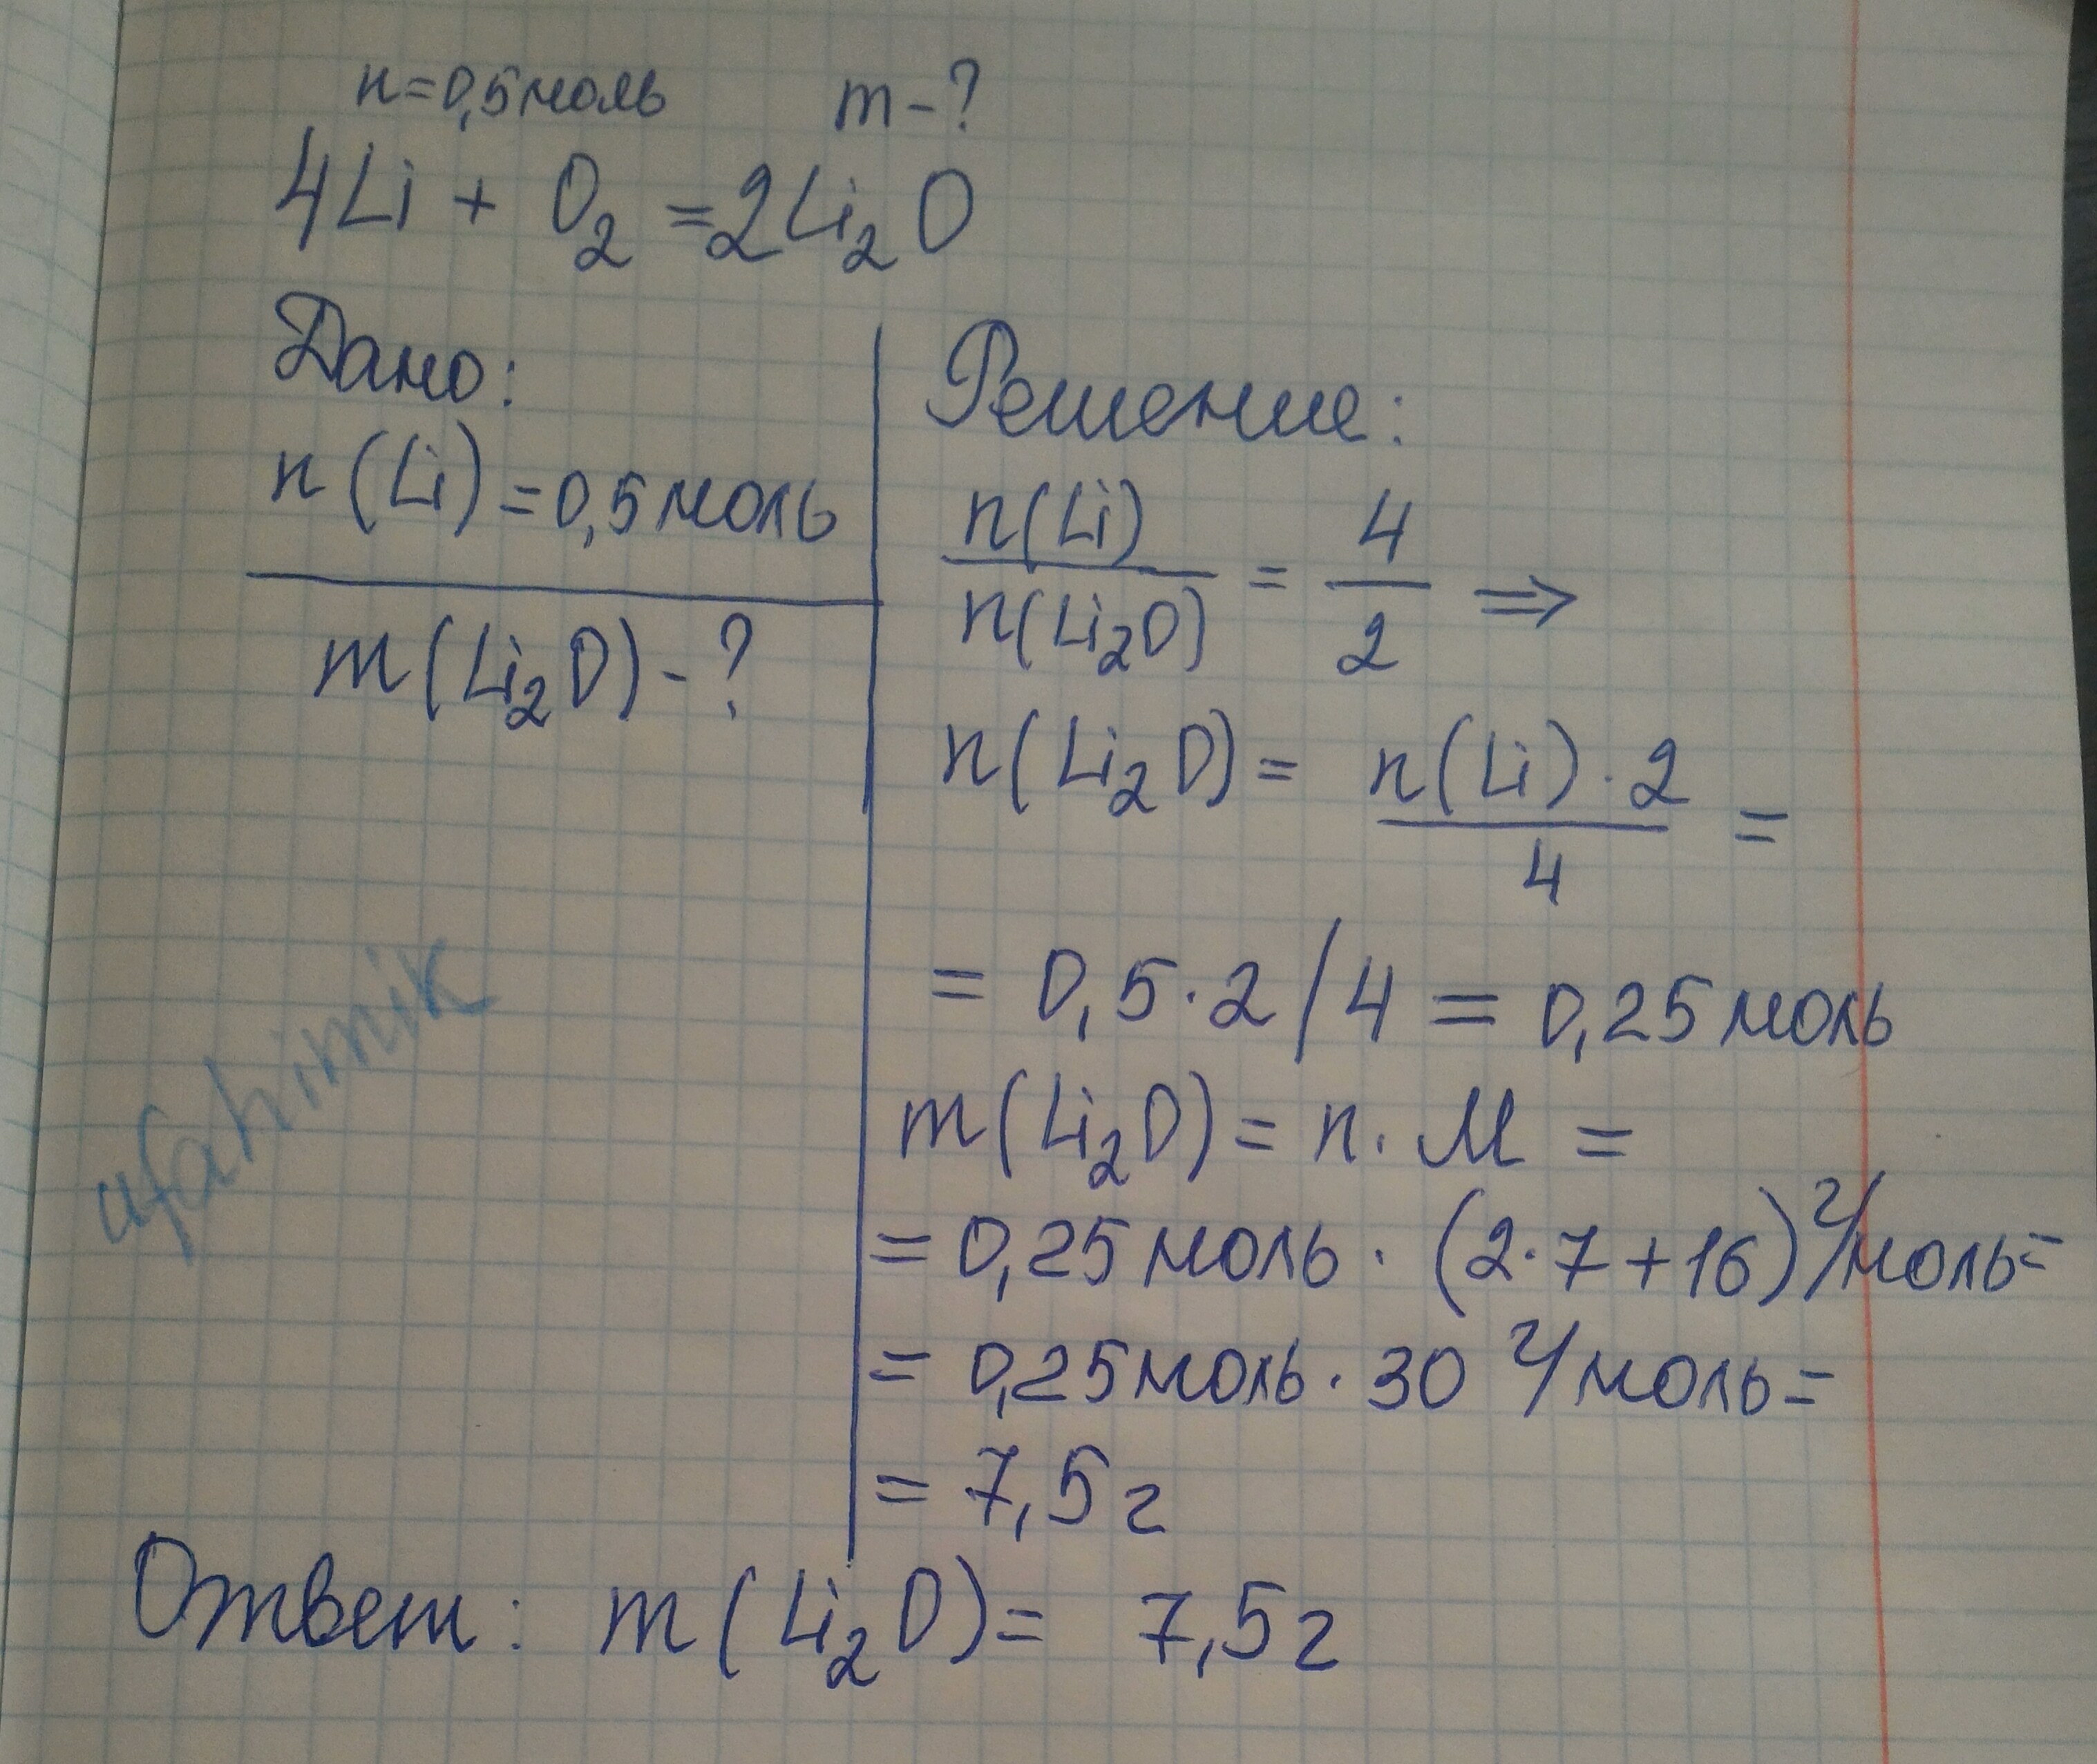 n=0,5моль m-?
4Li + O₂ =2Li₂O
Дано:
n(Li)=0,5моль
m(Li₂O)-?
Решение:
n(Li)/n(Li₂O) = 4/2 ⇒
n(Li₂O)= n(Li)·2/4 =
= 0,5·2/4 = 0,25моль
m(Li₂O)= n·M =
= 0,25моль·(2·7+16)г/моль=
= 0,25моль·30 г/моль=
= 7,5г
Ответ: m(Li₂O)= 7,5г
ufahimik